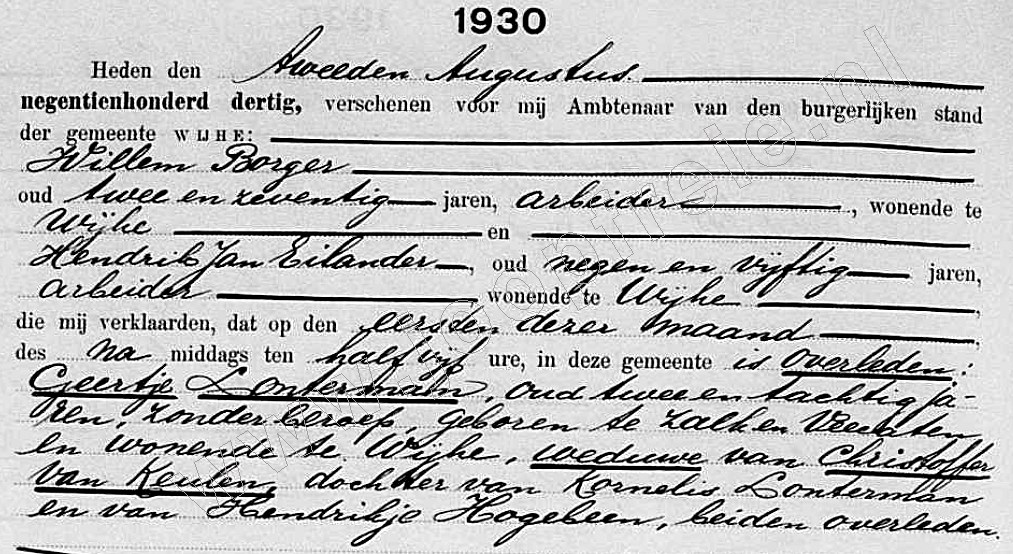 1930
Heden den Tweeden Augustus
negentienhonderd dertig, verschenen voor mij Ambtenaar van den burgerlijken stand
der gemeente WIJHE:
Willem Borger
oud twee en zeventig jaren, arbeider, wonende te
Wijhe en
Hendrik Jan Eilander, oud negen en vijftig jaren,
arbeider, wonende te Wijhe,
die mij verklaarden, dat op den eersten dezer maand,
des na middags ten half vijf ure, in deze gemeente is overleden:
Geertje Lonterman, oud twee en tachtig ja-
ren, zonder beroep, geboren te Zalk en Veecaten
en wonende te Wijhe, weduwe van Christoffer
van Keulen, dochter van Kornelis Lonterman
en van Hendrikje Hogebeen, beiden overleden.